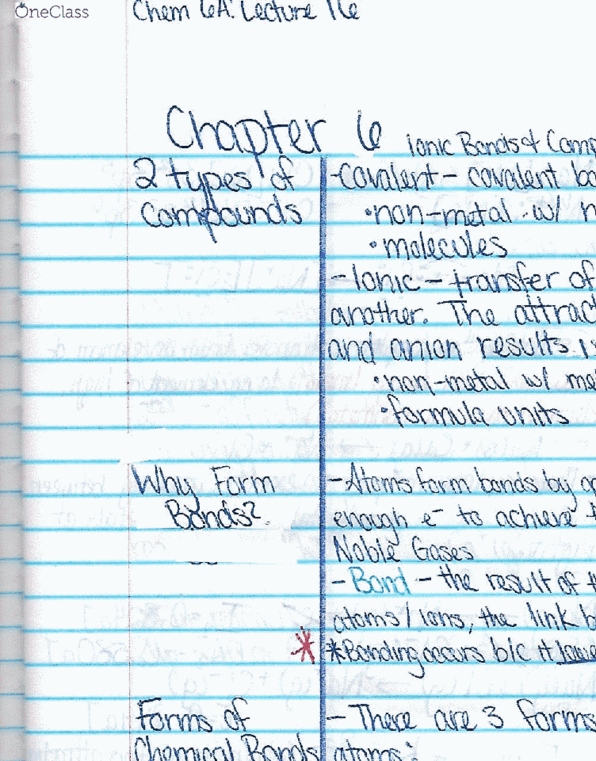 OneClass
Chem 6A: Lecture 16
Chapter 6
Ionic Bonds & Comp
2 types of
compounds
-Covalent- covalent bo
•non-metal w/ n
•molecules
-Ionic - transfer of
another. The attract
and anion results.
•non-metal w/ me
•formula units
Why Form
Bonds?
-Atoms form bonds by
enough e- to achieve
Noble Gases
-Bond - the result of
atoms/ions, the link b
*Bonding occurs b/c it lowe
Forms of
Chemical Bonds
- There are 3 forms
atoms: